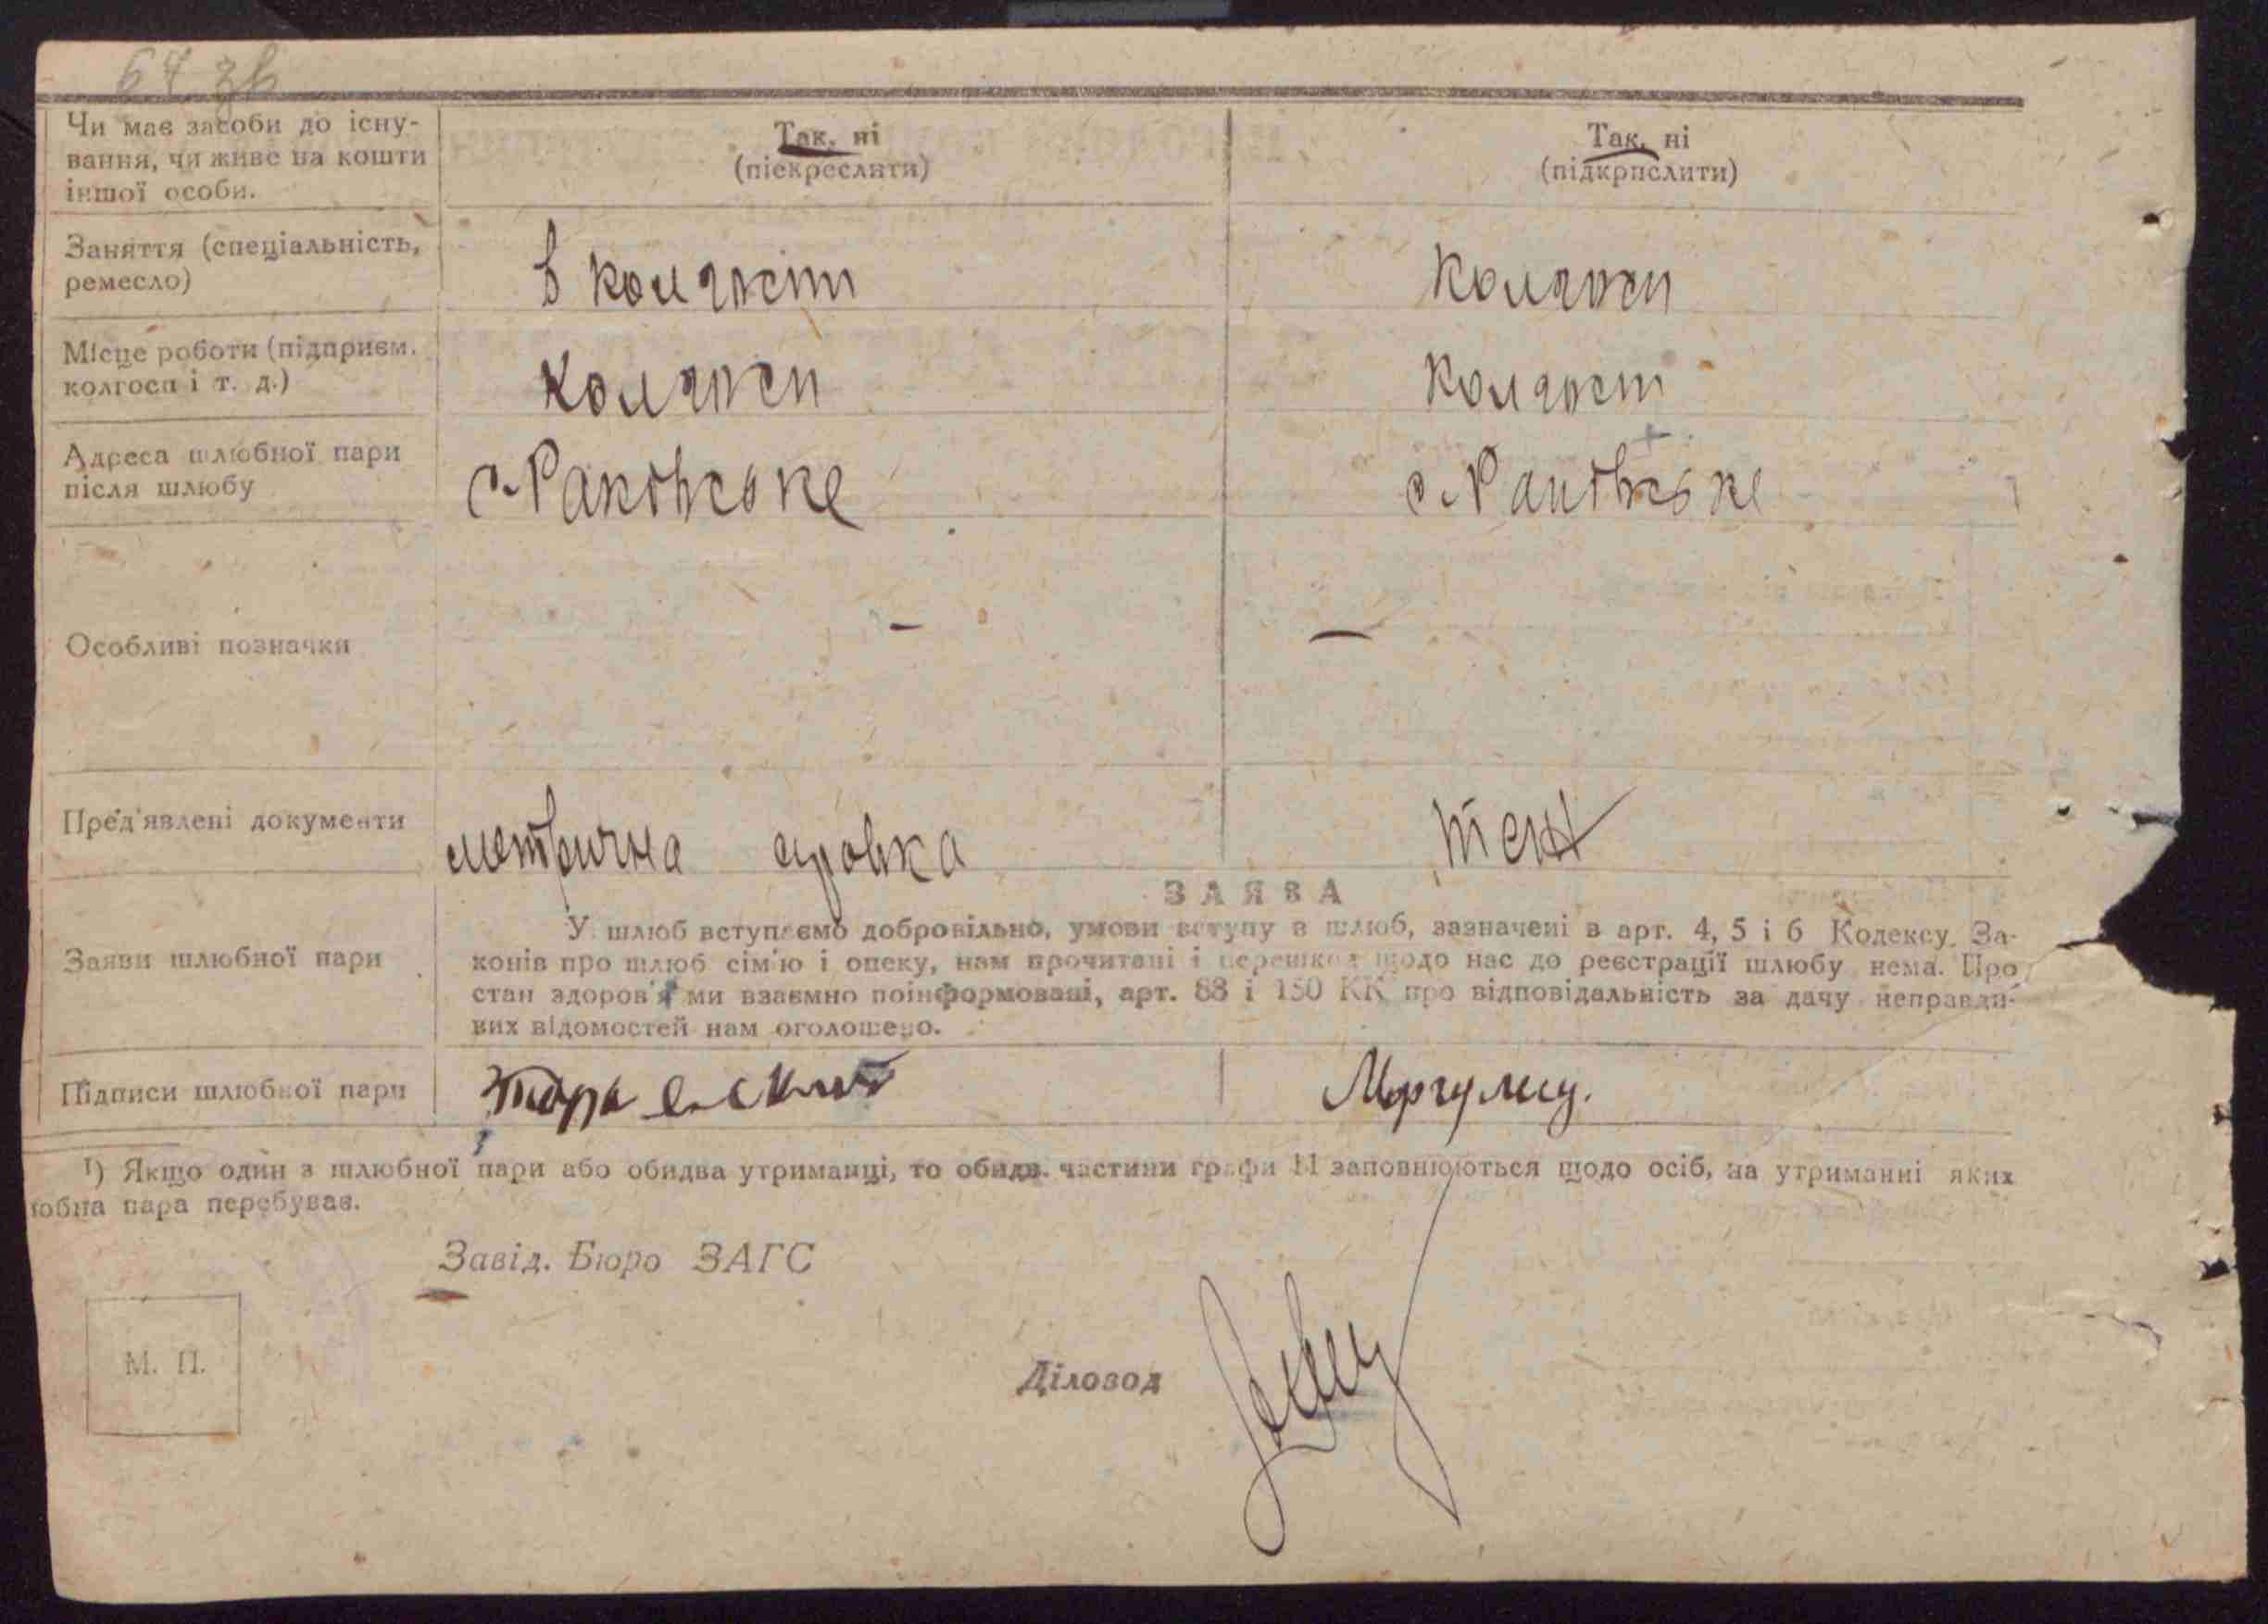 64 зв
Чи має засоби до існу-
вання, чи живе на кошти
іншої особи.
Так, ні
(піекреслити)
Так, ні
(підкрпслити)
Заняття (спеціальність,
ремесло)
в колгоспі
колгосп
Місце роботи (підприєм.
колгосп і т. д.)
колгосп
колгосп
Адреса шлюбної пари
після шлюбу
с. Раковське
с. Раковське
Особливі позначки
–
–
Пред'явлені документи
метрична
теж
ЗАЯВА
Заяви шлюбної пари
У шлюб вступаємо добровільно, умови вступу в шлюб, зазначені в арт. 4, 5 і 6 Кодексу За-
конів про шлюб сім'ю і опеку, нам прочитані і перешкод щодо нас до реєстрації шлюбу нема. Про
стан здоров'я ми взаємно поінформовані, арт. 88 і 150 КК про відповідальність за дачу неправди-
вих відомостей нам оголошено.
Підписи шлюбної пари
1) Якщо один з шлюбної пари або обидва утриманці, то обидв. частини графи 11 заповнюються щодо осіб, на утриманні яких
юбна пара перебуває.
Завід. Бюро ЗАГС
М. П.
Діловод